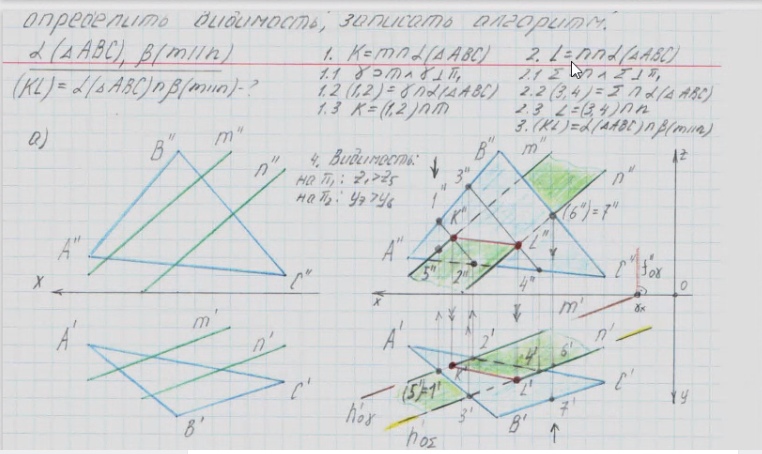 определить видимость, записать алгоритм.
α(△ABC), β(m∥n)
(KL)=α(△ABC)∩β(m∥n)-?
1. K=m∩α(△ABC)
1.1 γ⊃m ∧ γ⊥π₁
1.2 (1,2)=γ∩α(△ABC)
1.3 K=(1,2)∩m
2. L=n∩α(△ABC)
2.1 Σ⊃n ∧ Σ⊥π₁
2.2 (3,4)=Σ∩α(△ABC)
2.3 L=(3,4)∩n
3. (KL)=α(△ABC)∩β(m∥n)
а)
4. Видимость:
на π₁: z₁>z₅
на π₂: y₇>y₆
B" m" n"
A" C"
x
A' m' n'
C'
B'
B" m" z
3" n"
1" (6")=7"
K" L"
A" C" f"₀γ
5" 2" 4"
x γx 0
m'
A' 2' n'
4' 6'
K' C'
(5')=1' L'
h'₀γ 3' B' 7' y
h'₀Σ